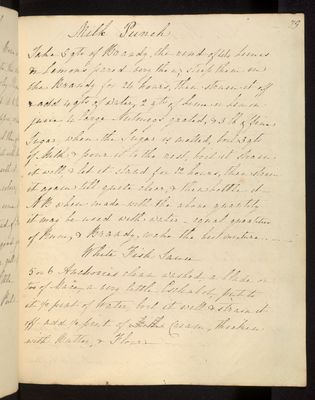 79
Milk Punch
Take 5 qts of Brandy, the rind of 42 limes
or Lemons pared very thin; steep them in
the Brandy for 24 hours, then strain it off
& add 4 qts of Water, 2 qts of Lime or Lemon
juice 4 large Nutmegs grated, & 3 lb of fine
Sugar, when the Sugar is melted, boil 3 qts
of Milk & pour it to the rest, boil it Strain
it well & let it stand for 12 hours, then strain
it again till quite clear, & then bottle it
NB when made with the above quantity
it may be used with water – equal quantities
of Rum, & Brandy, make the best mixture.
White Fish Sauce
5 or 6 Anchovies clean washed, a blade or
two of Mace, a very little Eschalot, put to
it ½ pint of Water, boil it well & strain it
off add ½ pint of Cream, thicken
with Butter, & Flour